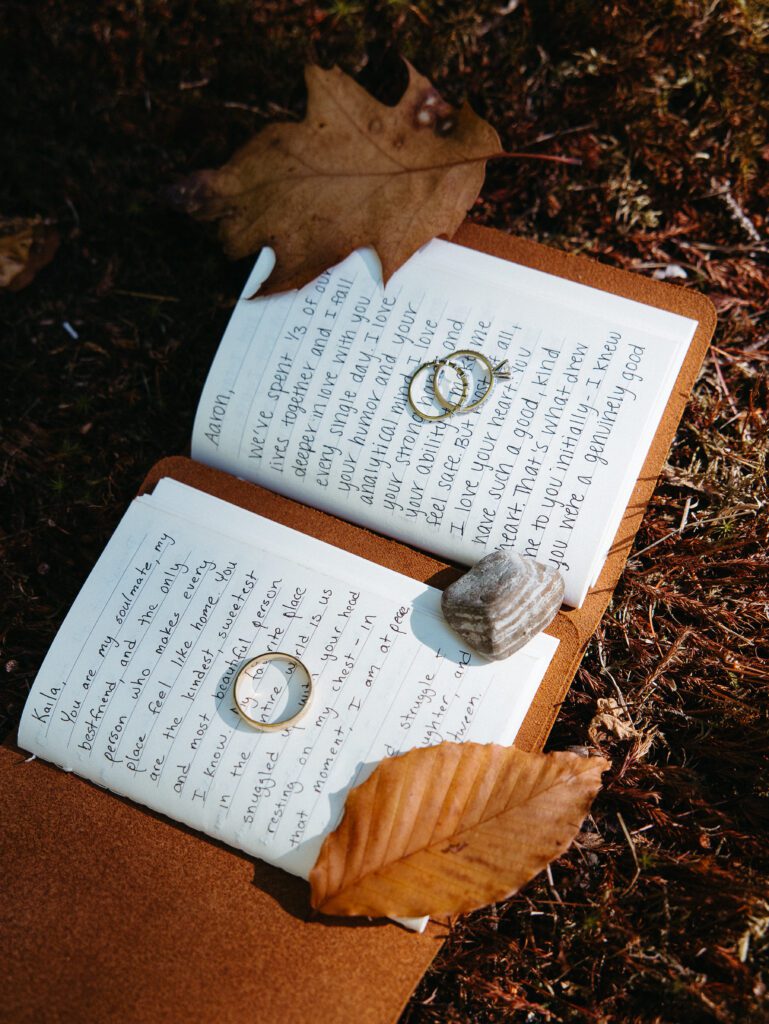 Aaron,
we've spent 1/3 of our
lives together and I fall
deeper in love with you
every single day. I love
your humor and your
analytical mind. I love
your strong and
your ability me
feel safe. But most of all,
I love your heart. You
have such a good, kind
heart. That's what drew
me to you initially. I knew
you were a genuinely good
Kaila,
You are my soulmate, my
bestfriend, and the only
person who makes every
place feel like home. You
are the kindest, sweetest
and most beautiful person
I know. My favorite place
in the entire world is us
snuggled up with your head
resting on my chest - in
that moment, I am at peace.
struggle I
laughter, and